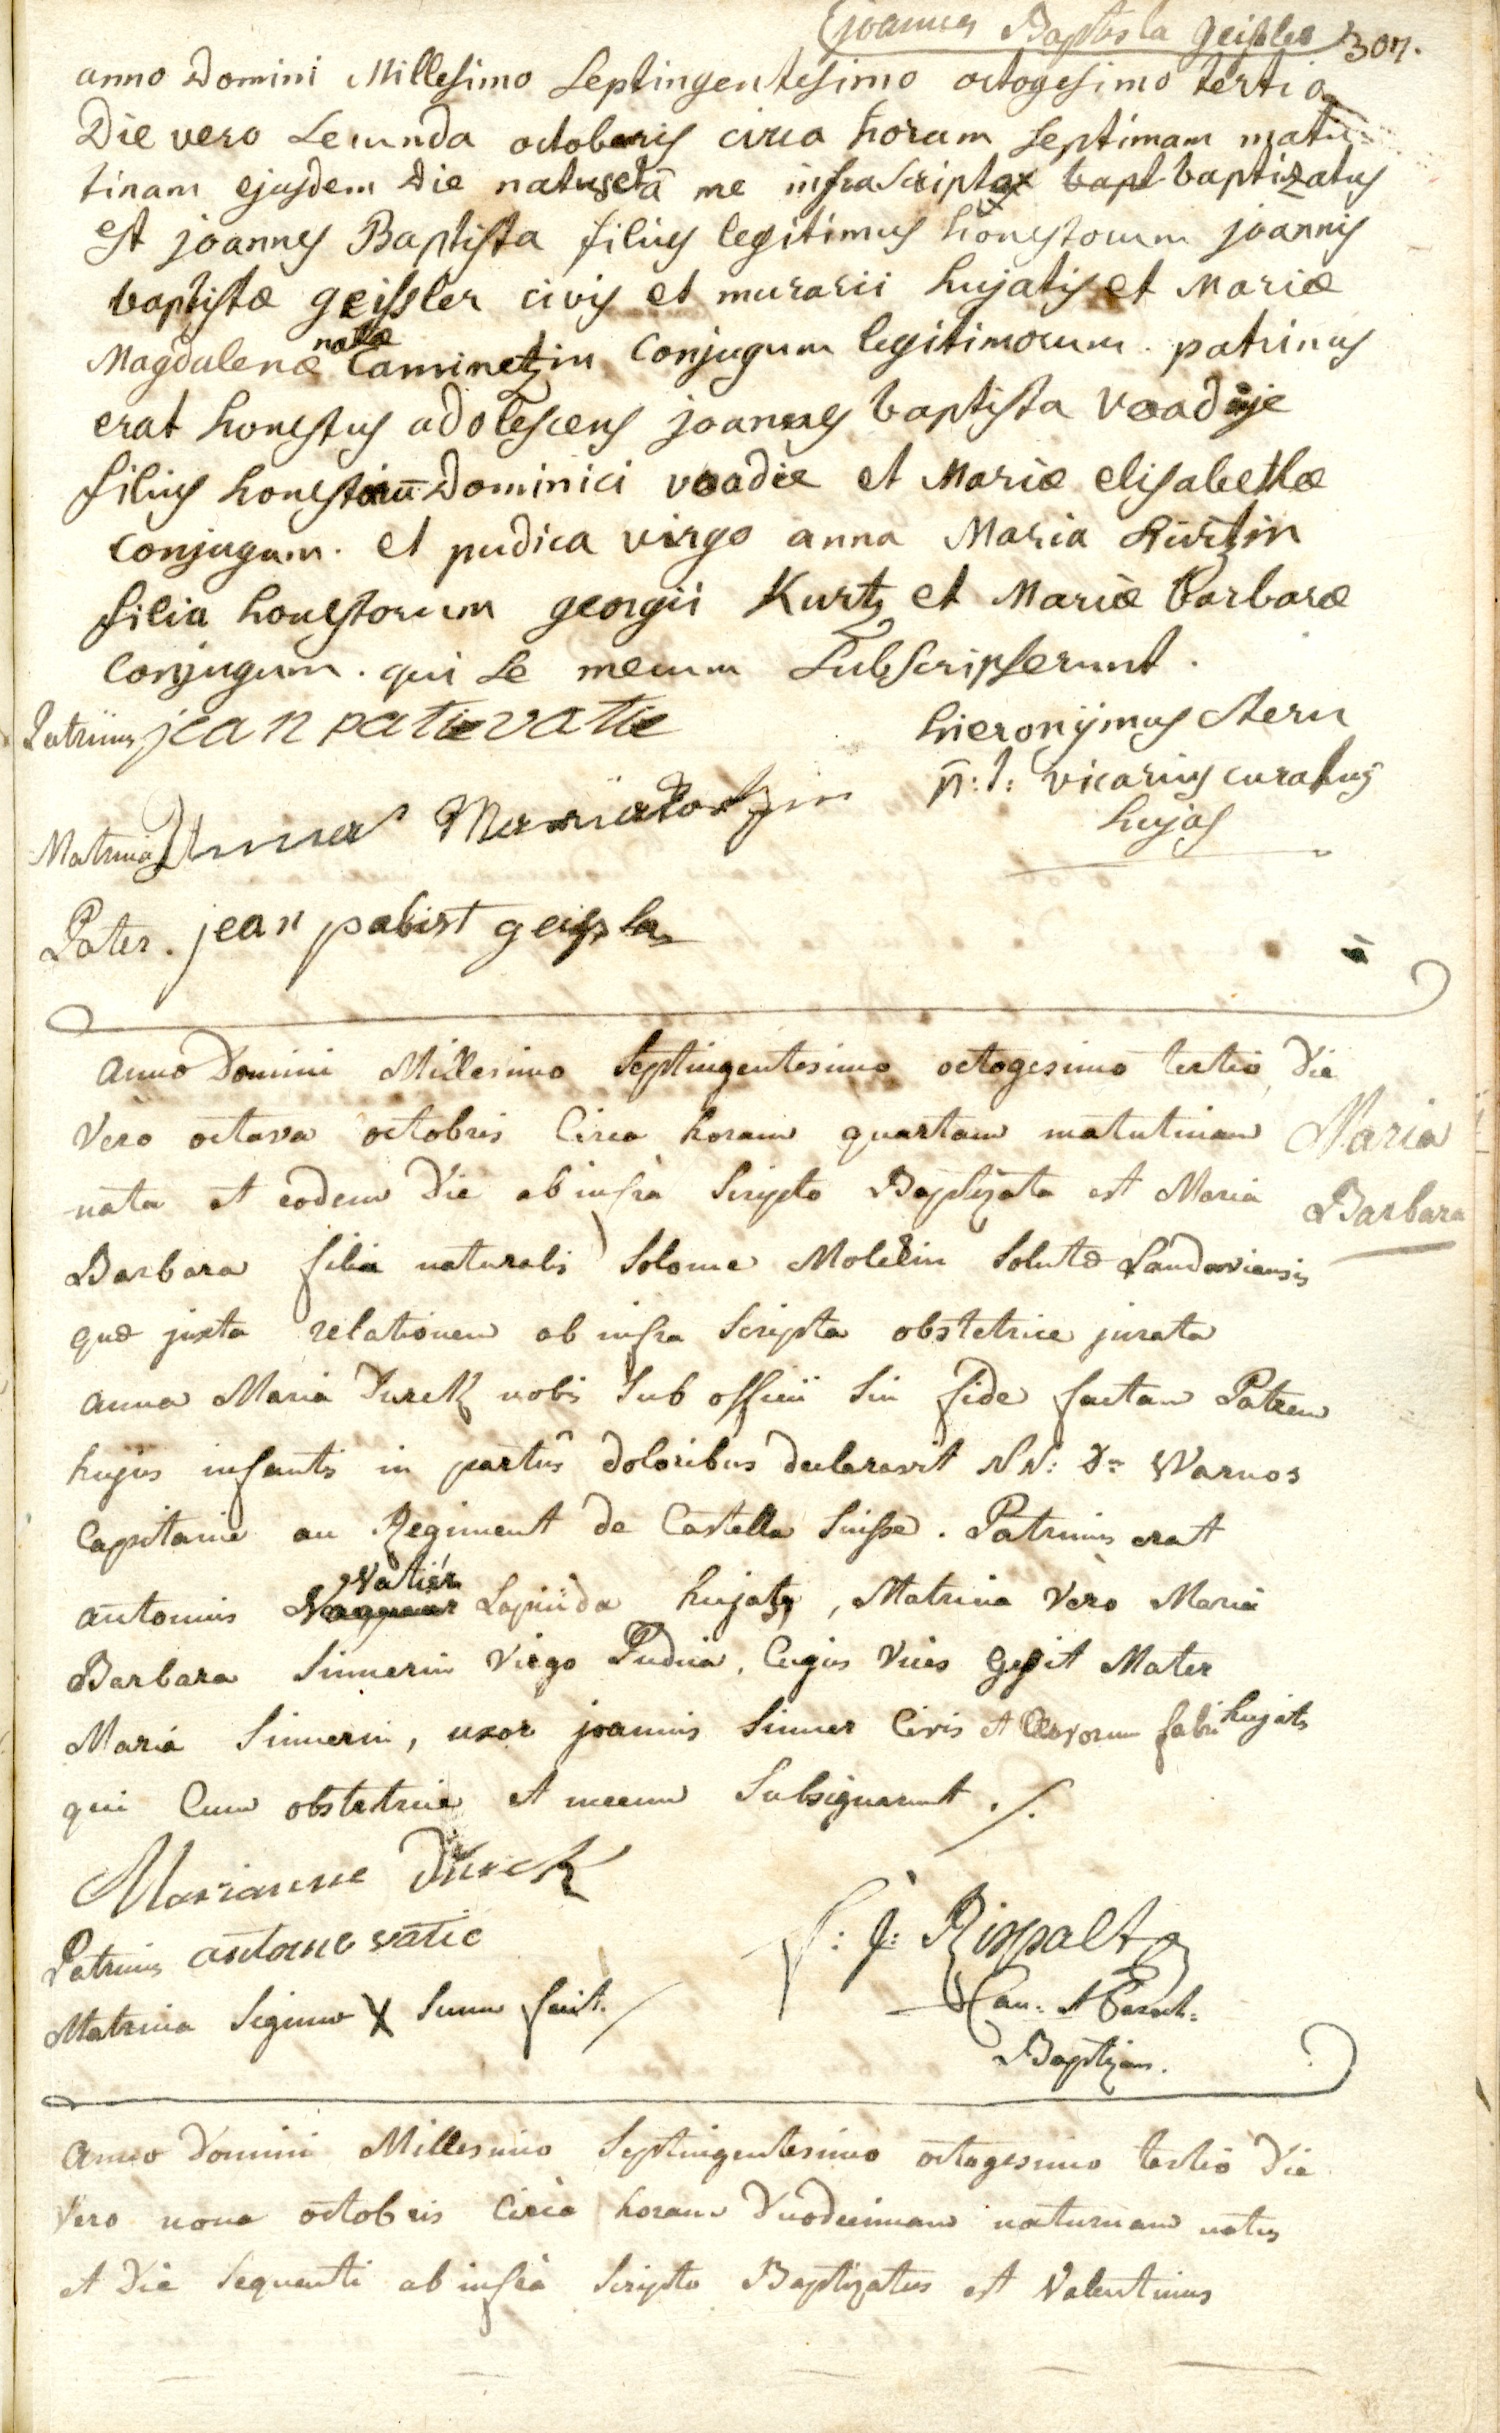 joannes Baptista geissler 307.
anno Domini Millesimo Septingentesimo octogesimo tertio
Die vero Secunda octobris circa horam Septimam matu-
tinam ejusdem Die natus et a me infrascripto bapt baptizatus
est joannes Baptista filius legitimus honestorum joannis
baptistæ geissler civis et murarii hujatis et Mariæ
Magdalenæ natæ Caminetzin Conjugum legitimorum. patrinus
erat honestus adolescens joannes baptista voadije
filius honestorū Dominici voadie et Mariæ elisabethæ
conjugum. et pudica virgo anna Maria Kurtzin
filia honestorum georgii Kurtz et Mariæ barbaræ
Conjugum. qui se mecum Subscripserunt.
Patrinus jean patievatie
hieronÿmus Stern
n: t: vicarius curatus
hujas
Matrina Anna Maria
Pater. jean pabist geissler
Anno Domini Millesimo Septingentesimo octogesimo tertio, Die
Vero octava octobris Circa horam quartam matutinam
Maria
nata et eodem Die ab infra Scripto Baptizata est Maria
Barbara
Barbara filia naturalis Solome Moleein Solutæ Landaviensis
quæ juxta relationem ab infra Scripta obstetrice jurata
Anna Maria Durck nobis Sub officii Sui fide factam Patrem
hujus infantis in partus doloribus declaravit NN: Dn Warnos
Capitaine au Regiment de Castella Suisse. Patrinus erat
antonius Vatier Lapicida hujas, Matrina Vero Maria
Barbara Simmerin Virgo Pudica, Cujus Vices Gessit Mater
Maria Simmerin, uxor joannis Simmer Civis et Clavorum fabri hujatis
qui Cum obstetrice et mecum Subsignarunt ./.
Marianne Durck
Patrinus antone vatie
Matrina Signum X Suum fecit.
f: J: Rippalt
Can: et Paroch:
Baptizans.
Anno Domini Millesimo Septingentesimo octogesimo tertio Die
Vero nona octobris Circa horam Duodecimam nocturnam natus
et Die Sequenti ab infra Scripto Baptizatus est Valentinus